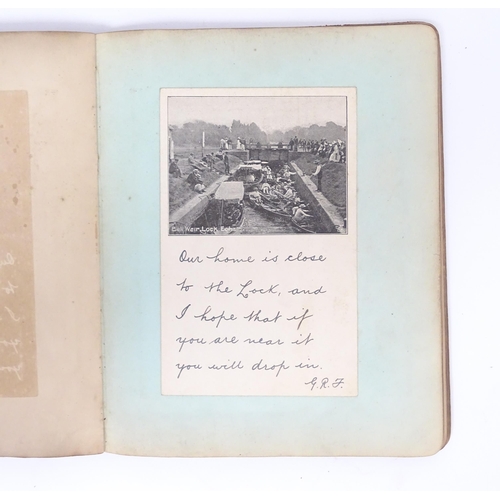 Bell Weir Lock, Egham
Our home is close
to the Lock, and
I hope that if
you are near it
you will drop in.
G. R. F.